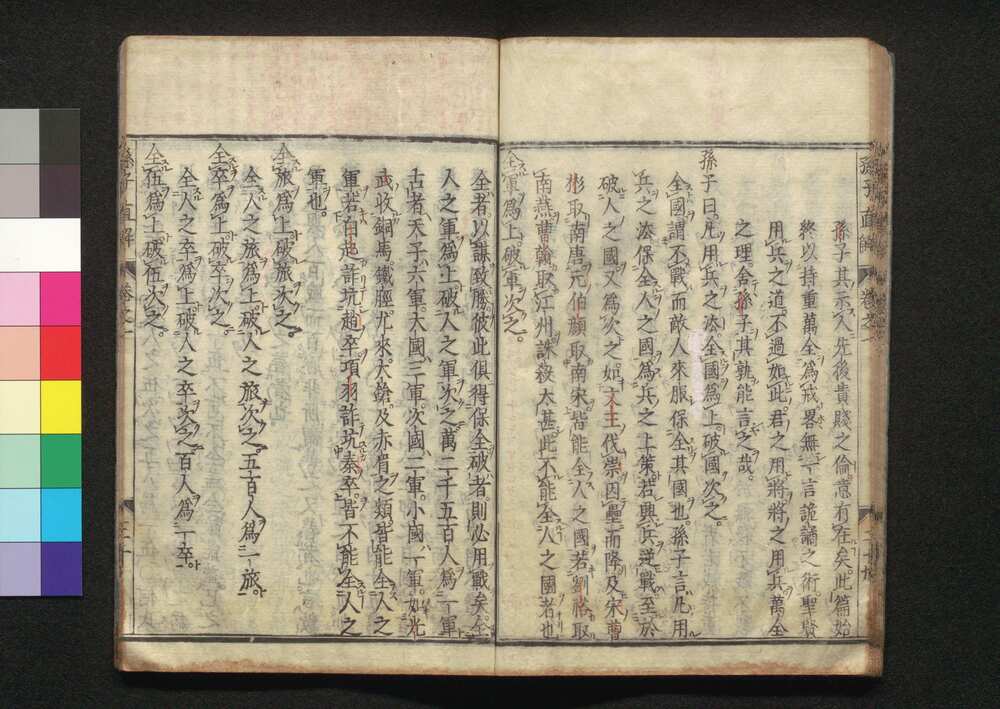 孫子直解 卷之一
孫子其示人先後貴賤之倫意有在矣此篇始
終以持重萬全爲戒畧無一言詭譎之術聖賢
用兵之道不過如此君之用將將之用兵萬全
之理舍孫子其孰能言之哉
孫子曰凡用兵之法全國爲上破國次之
全國謂不戰而敵人來服保全其國也孫子言凡用
兵之法保全人之國爲兵之上策若興兵逆戰至於
破人之國又爲次之如文王伐崇因壘而降及宋曹
彬取南唐元伯顔取南宋皆能全人之國若劉裕取
南燕曹翰取江州誅殺太甚此不能全人之國者也
全軍爲上破軍次之
全者以謀致勝彼此俱得保全破者則必用戰矣全
人之軍爲上破人之軍次之萬二千五百人爲一軍
古者天子六軍大國三軍次國二軍小國一軍如光
武收銅馬鐵脛尤來大鎗及赤眉之類皆能全人之
軍若白起詐坑趙卒項羽詐坑秦卒皆不能全人之
軍也
全旅爲上破旅次之
全人之旅爲上破人之旅次之五百人爲一旅
全卒爲上破卒次之
全人之卒爲上破人之卒次之百人爲一卒
全伍爲上破伍次之
孫子直解 卷之一